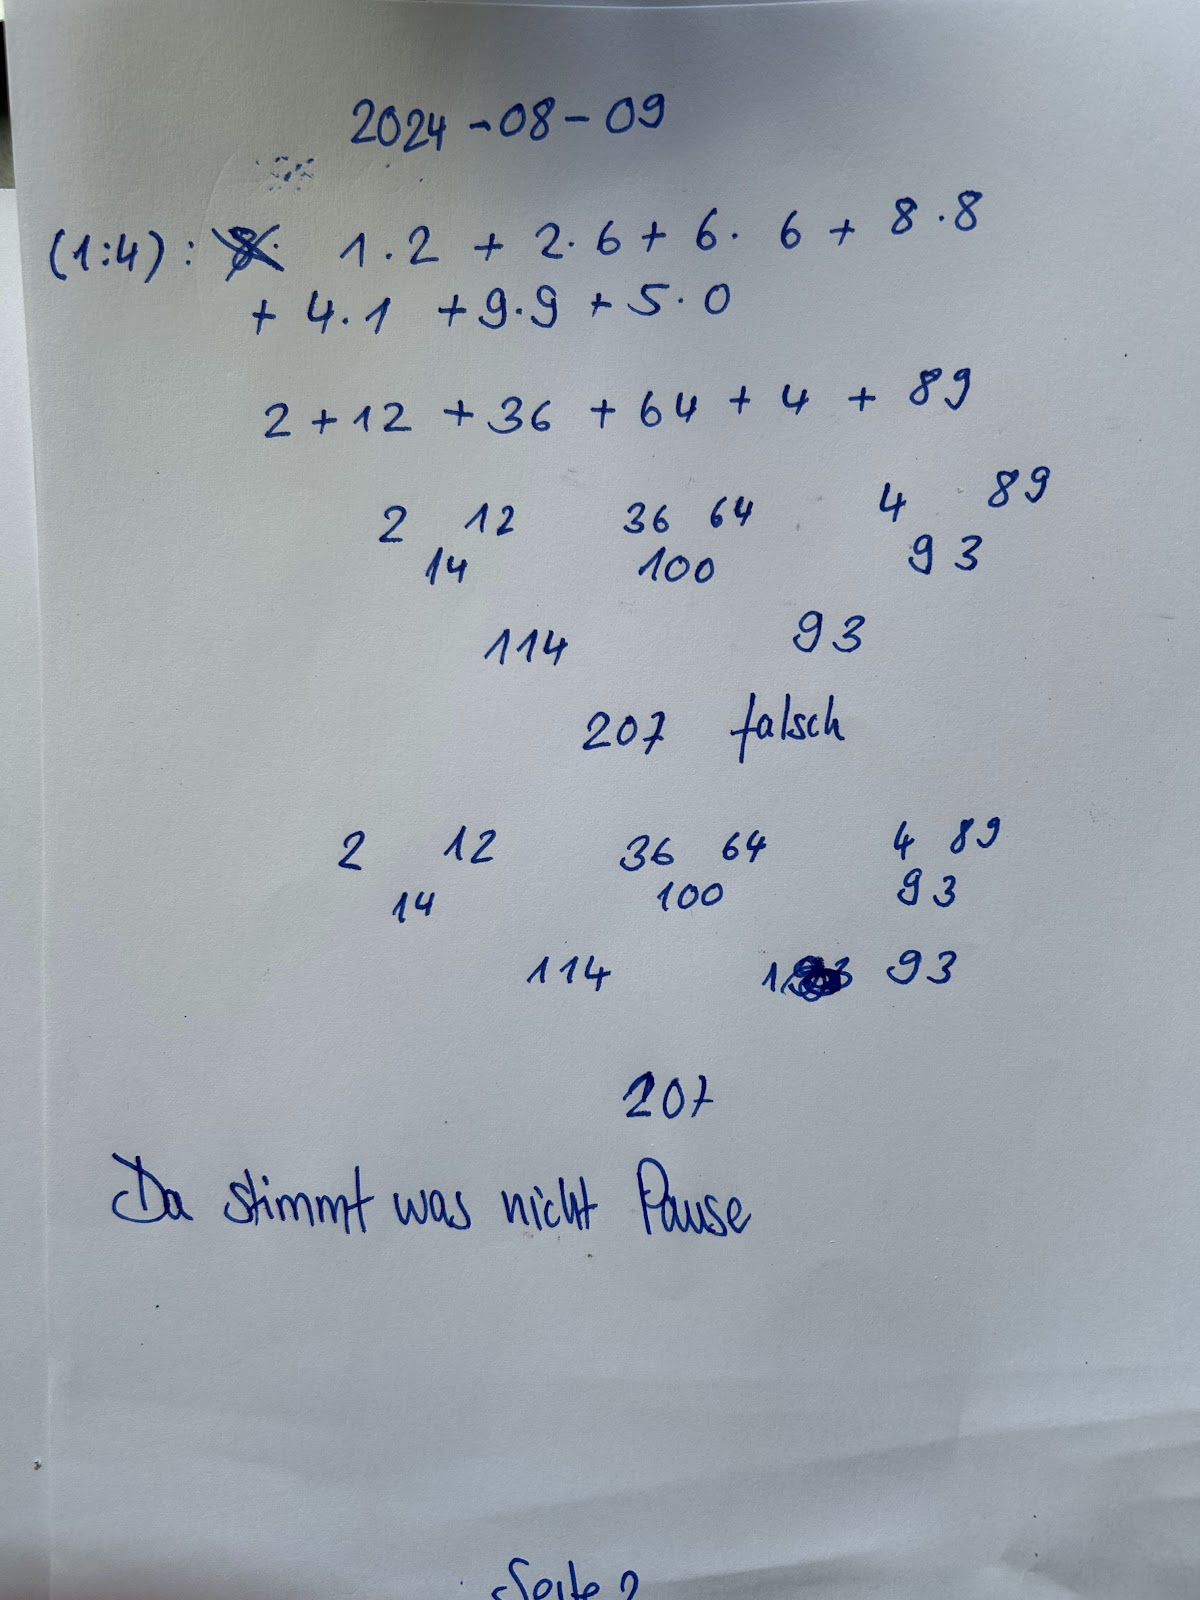 2024-08-09
(1:4): 1.2 + 2.6 + 6.6 + 8.8
+ 4.1 + 9.9 + 5.0
2 + 12 + 36 + 64 + 4 + 89
2 12 36 64 4 89
14 100 93
114 93
207 falsch
2 12 36 64 4 89
14 100 93
114 93
207
Da stimmt was nicht Pause
Seite 2